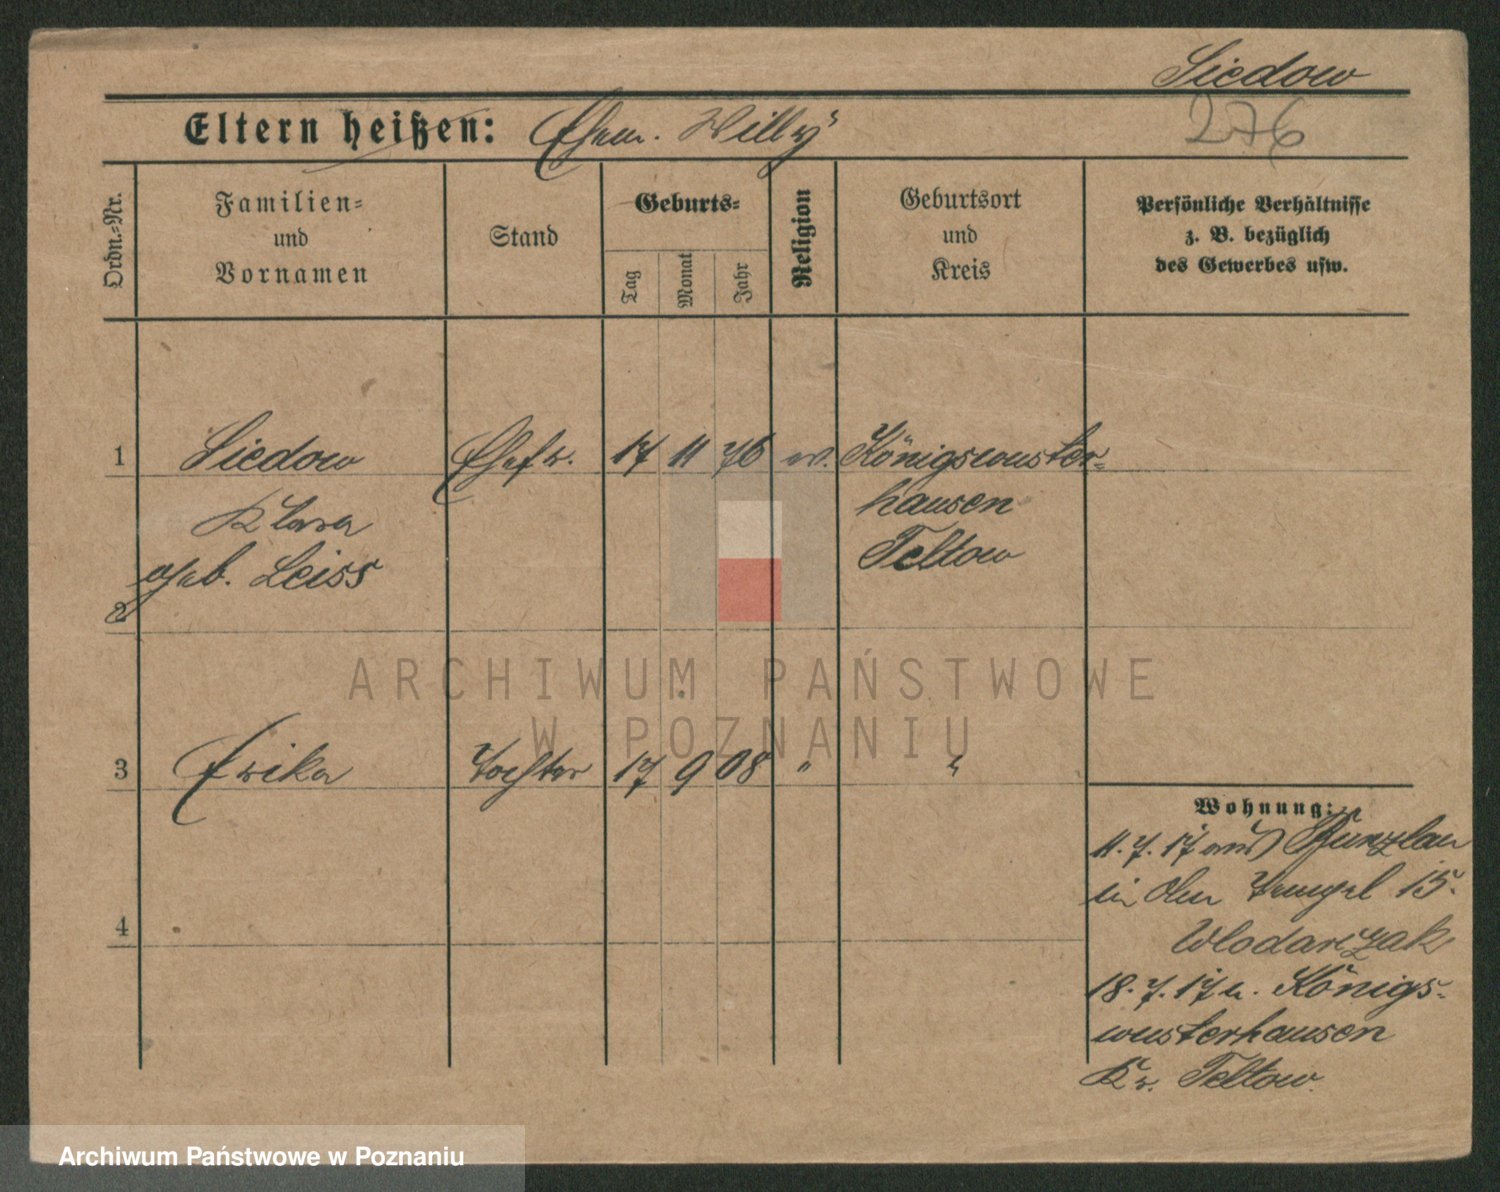 Siedow
276
Eltern heißen: Ehem. Willy
Ordn.-Nr.
Familien-
und
Vornamen
Stand
Geburts-
Tag
Monat
Jahr
Religion
Geburtsort
und
Kreis
Persönliche Verhältnisse
z. B. bezüglich
des Gewerbes usw.
1 Siedow Ehefr. 17 11 76 ev. Königswuster-
Klara hausen
geb. Leiss Teltow
2
3 Erika Tochter 17 9 08 " "
4
Wohnung:
11.7.17 aus Bunzlau
in 15.
Wlodarczak
18.7.17 n. Königs-
wusterhausen
Kr. Teltow.
ARCHIWUM PAŃSTWOWE
W POZNANIU
Archiwum Państwowe w Poznaniu